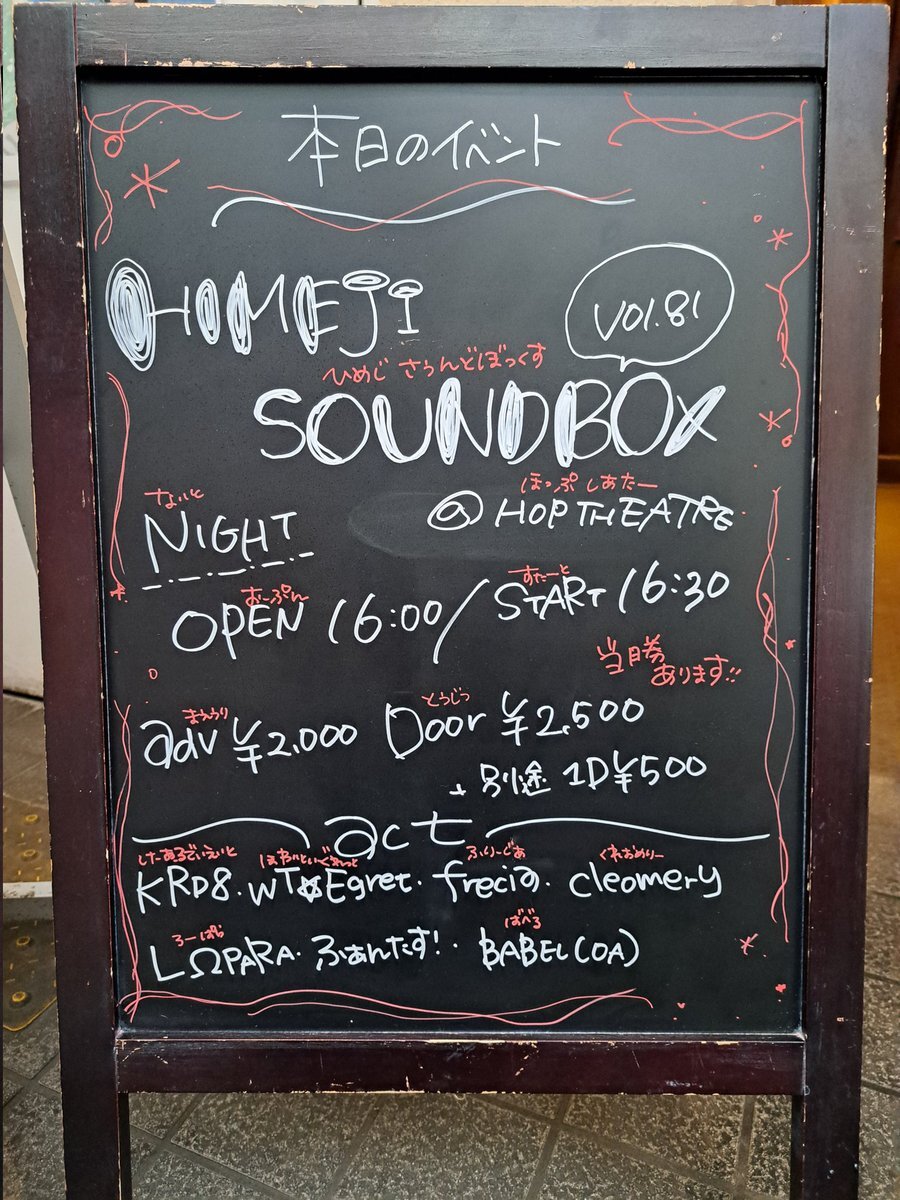 本日のイベント
HIMEJI
VOl.81
ひめじ さうんどぼっくす
SOUNDBOX
ないと
NIGHT
ほっぷ しあたー
@ HOP THEATRE
おーぷん すたーと
OPEN 16:00/START 16:30
当日券
あります!!
まえうり とうじつ
adv ¥2,000 Door ¥2,500
+ 別途 1D¥500
act
けーあるでぃえいと ほわいといぐれっと ふりーじあ くれおめりー
KRD8. WT☆Egret. frecia. cleomery
ろーぱら ばべる
LΩPARA. ふぁんたす!. BABEL(OA)